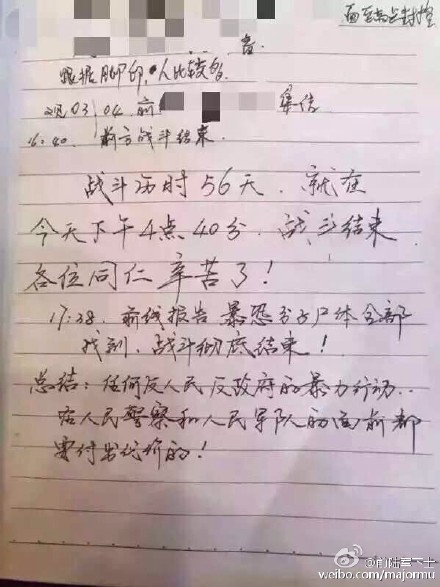 面至高点封控
者.
根据脚印,人比较多.
03/04 前
集结
16:40. 前方战斗结束.
战斗历时56天. 就在
今天下午4点40分. 战斗结束
各位同仁辛苦了!
17:38. 前线报告 暴恐分子尸体全部
找到. 战斗彻底结束!
总结: 任何反人民反政府的暴力行动..
在人民警察和人民军队的面前都
要付出代价的!
@前陆军下士
weibo.com/majormu